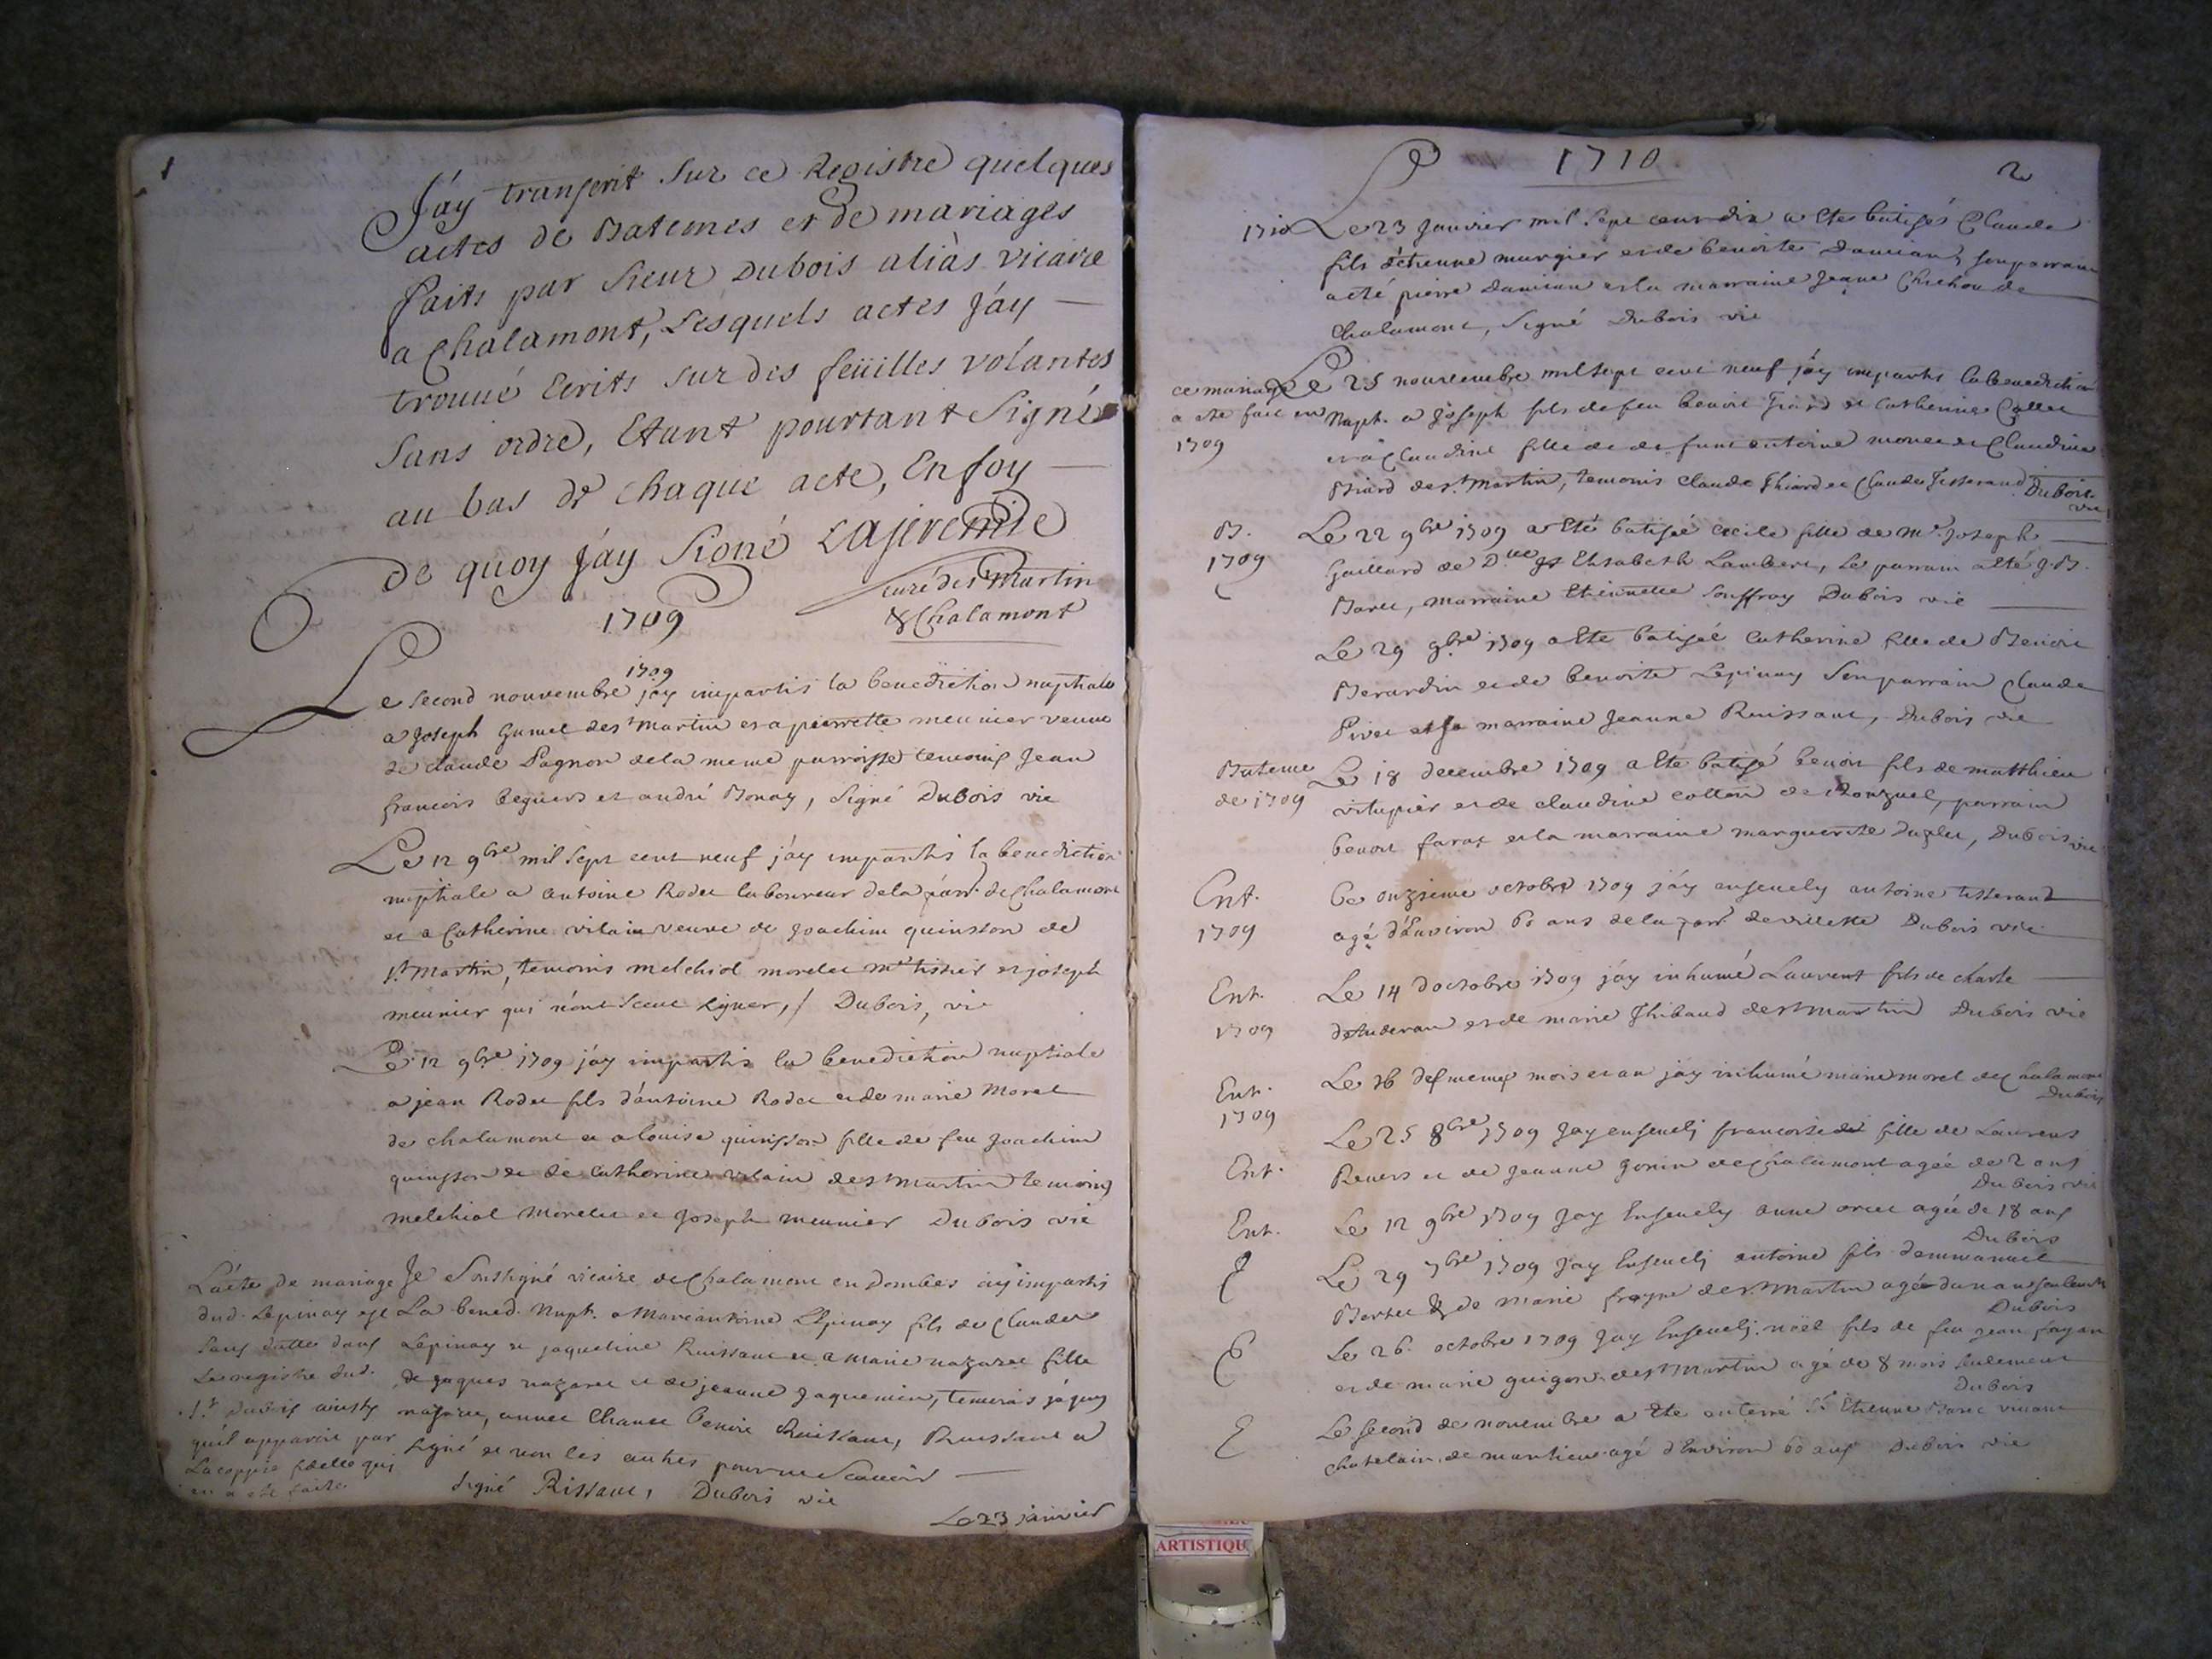 1
J'ay transcrit sur ce Registre quelques
actes de Batemes et de mariages
faits par sieur Dubois aliàs vicaire
a Chalamont, Lesquels actes J'ay
trouué Ecrits sur des feüilles volantes
sans ordre, Etant pourtant signé
au bas de chaque acte, En foy
de quoy J'ay signé Lajeremie
curé de st Martin
& Chalamont
1709
1709
Le second nouvembre jay impartis la benediction nuptiale
a Joseph des t Martin et a pierrette meunier veuue
de claude Pagnon de la meme parroisse temoins Jean
francois beguers et andré Bonay, signé Dubois vic
Le 12 9bre mil sept cent neuf j'ay impartis la benediction
nuptiale a antoine Rodet laboureur de la parr. de Chalamont
et a Catherine vilain veuve de Joachim quinson de
st Martin, temoins melchiol morelet mr tissier et joseph
meunier qui n'ont sceut signer, / Dubois, vic
Le 12 9bre 1709 j'ay impartis la benediction nuptiale
a jean Rodet fils d'antoine Rodet et de marie Morel
de chalamont et a louise quinsson fille de feu Joachim
quinsson et de catherine vilain de st martin temoins
melchiol Morelet et Joseph meunier Dubois vic
L'acte de mariage
dud. Lepinay est
sans datte dans
Le registre dud.
sr Dubois ainsy
qu'il apparoit par
La coppie fidelle qui
en a eté faite
Je Soussigné vicaire de Chalamont en Dombes ay impartis
La bened. Nupt. a Marc antoine Lepinay fils de Claude
Lepinay et jaqueline Ruissant et a marie nazaret fille
de jaques nazaret et de jeanne Jaquemin, temoins jaques
benoit Ruissant, Ruissant a
signé et non les autres pour ne scauoir
signé Rissant, Dubois vic
Le 23 janvier
1710
2
1710
Le 23 Janvier mil sept cent dix a été batisé Claude
fils d'etienne murgier et de benoite Damian, son parrain
a eté pierre Damian et la marraine Jeane de
Chalamont, signé Dubois vic
ce mariage
a eté fait en
1709
Le 25 nouvembre mil sept cent neuf j'ay impartis la benediction
Nupt. a Joseph fils de feu benoit et Catherine Collet
et a Claudine fille de defunt antoine monet et Claudine
Biard de st Martin, temoins claude Thiard et Claude Tisserand Dubois
vic
B.
1709
Le 22 9bre 1709 a Eté batisée cecile fille de Mr Joseph
Gaillard et Dlle Elisabeth Lambert, Le parrain a eté J. B.
Baret, marraine Etiennette Souffray Dubois vic
Le 29 9bre 1709 a Eté batisée catherine fille de Benoit
Berardin et de benoite Lepinay son parrain Claude
Pivet et sa marraine Jeanne Ruissant, Dubois vic
Bateme
de 1709
Le 18 decembre 1709 a Eté batisé benoit fils de matthieu
vitupier et de claudine cotton de Ronzuel, parrain
benoit farat et la marraine marguerite Duplet, Dubois vic
Ent.
1709
Ce onzieme octobre 1709 j'ay ensevely antoine tisserand
agé d'environ 60 ans de la parr. de villette Dubois vic
Ent.
1709
Le 14 d'octobre 1709 j'ay inhumé Laurent fils de charle
et de marie Thibaud de st Martin Dubois vic
Ent.
1709
Le 16 des memes mois et an j'ay inhumé marie morel de Chalamont
Dubois
Ent.
Le 25 8bre 1709 J'ay ensevely francoise fille de Laurens
Revers et de Jeanne Gonin de Chalamont agée de 2 ans
Dubois vic
Ent.
Le 12 9bre 1709 J'ay Ensevely anne agée de 18 ans
Dubois
E
Le 29 7bre 1709 J'ay Ensevely antoine fils d'emmanuel
Bertet & de Marie de st Martin agé d'un an seulement
Dubois
E
Le 26. octobre 1709 J'ay Ensevely noël fils de feu jean
et de marie guigon de st Martin agé de 8 mois seulement
Dubois
E
Le second de novembre a Eté enterré sr Etienne Baret vivant
chatelain de agé d'environ 60 ans Dubois vic
ARTISTIQU